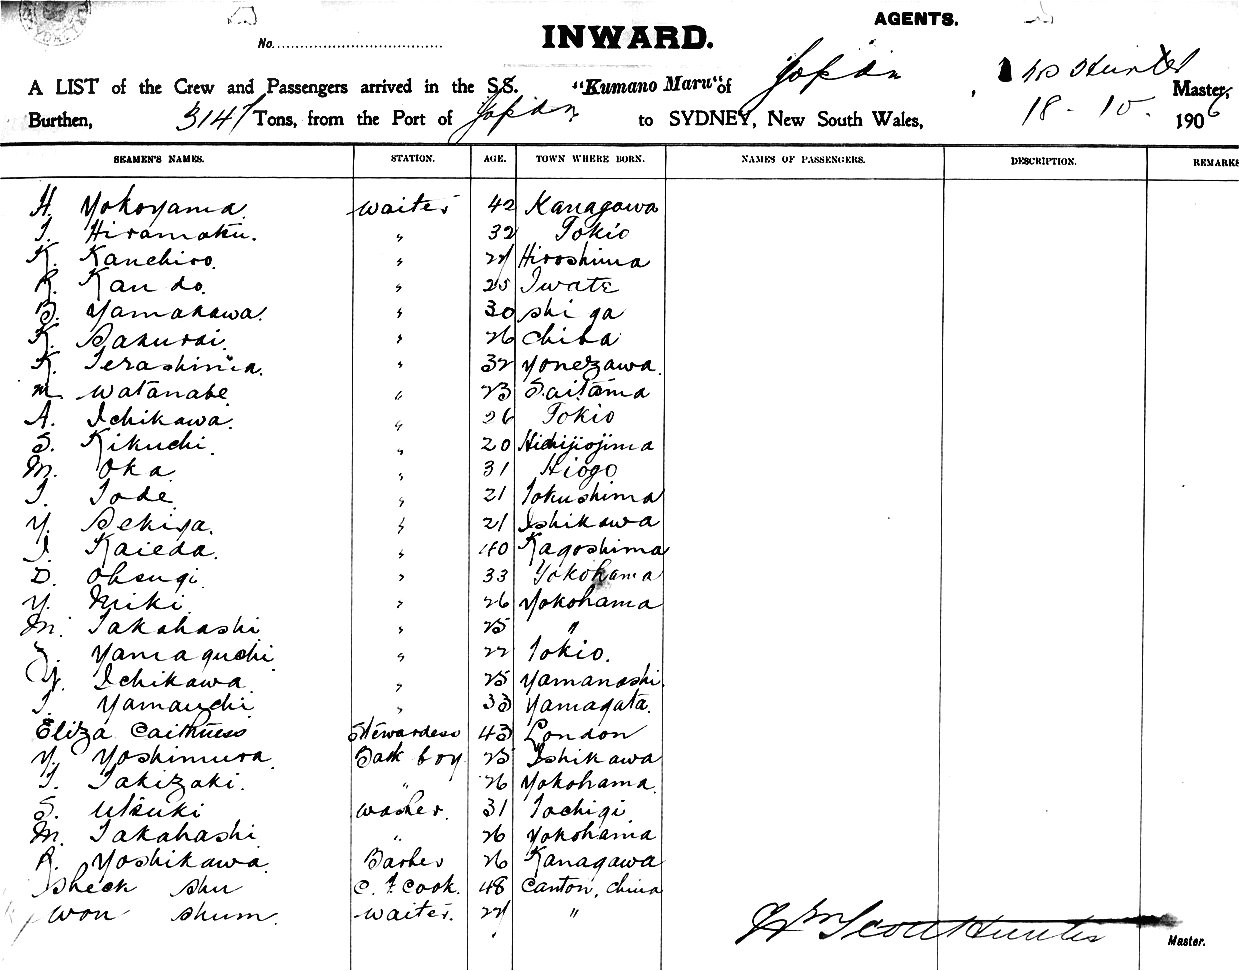 AGENTS.
No.
INWARD.
A LIST of the Crew and Passengers arrived in the S.S. "Kumano Maru" of Japan, Hunter Master,
Burthen, 3147 Tons, from the Port of Japan to SYDNEY, New South Wales, 18-10-1906
SEAMEN'S NAMES. STATION. AGE. TOWN WHERE BORN. NAMES OF PASSENGERS. DESCRIPTION. REMARKS
H. Yokoyama waiter 42 Kanagawa
T. Hiramatu. " 32 Tokio
K. Kanehiro. " 27 Hiroshima
R. Kando. " 25 Iwate
B. Yamakawa. " 30 Shiga
K. Sakurai. " 26 Chiba
K. Terashima. " 32 Yonezawa.
M. Watanabe " 23 Saitama
A. Ichikawa. " 26 Tokio
S. Kikuchi. " 20 Hichijiojima
M. Oka. " 31 Hiogo
T. Tode. " 21 Tokushima
Y. Sekiya. " 21 Ishikawa
I. Kaieda. " 40 Kagoshima
D. Ohsugi. " 33 Yokohama
Y. Miki. " 26 Yokohama
M. Takahashi " 25 "
Yamaguchi. " 22 Tokio.
Y. Ichikawa. " 25 Yamanashi.
T. Yamauchi " 33 Yamagata.
Eliza Caithness Stewardess 43 London
Y. Yoshimura. Bath boy 25 Ishikawa
T. Takizaki. " 26 Yokohama.
S. Utsuki washer. 31 Tochigi.
M. Takahashi " 26 Yokohama
R. Yoshikawa. Barber 26 Kanagawa
Sheck Shu C. F Cook. 48 Canton, China
Won Shum. waiter. 27 "
Wm Scott Hunter
Master.